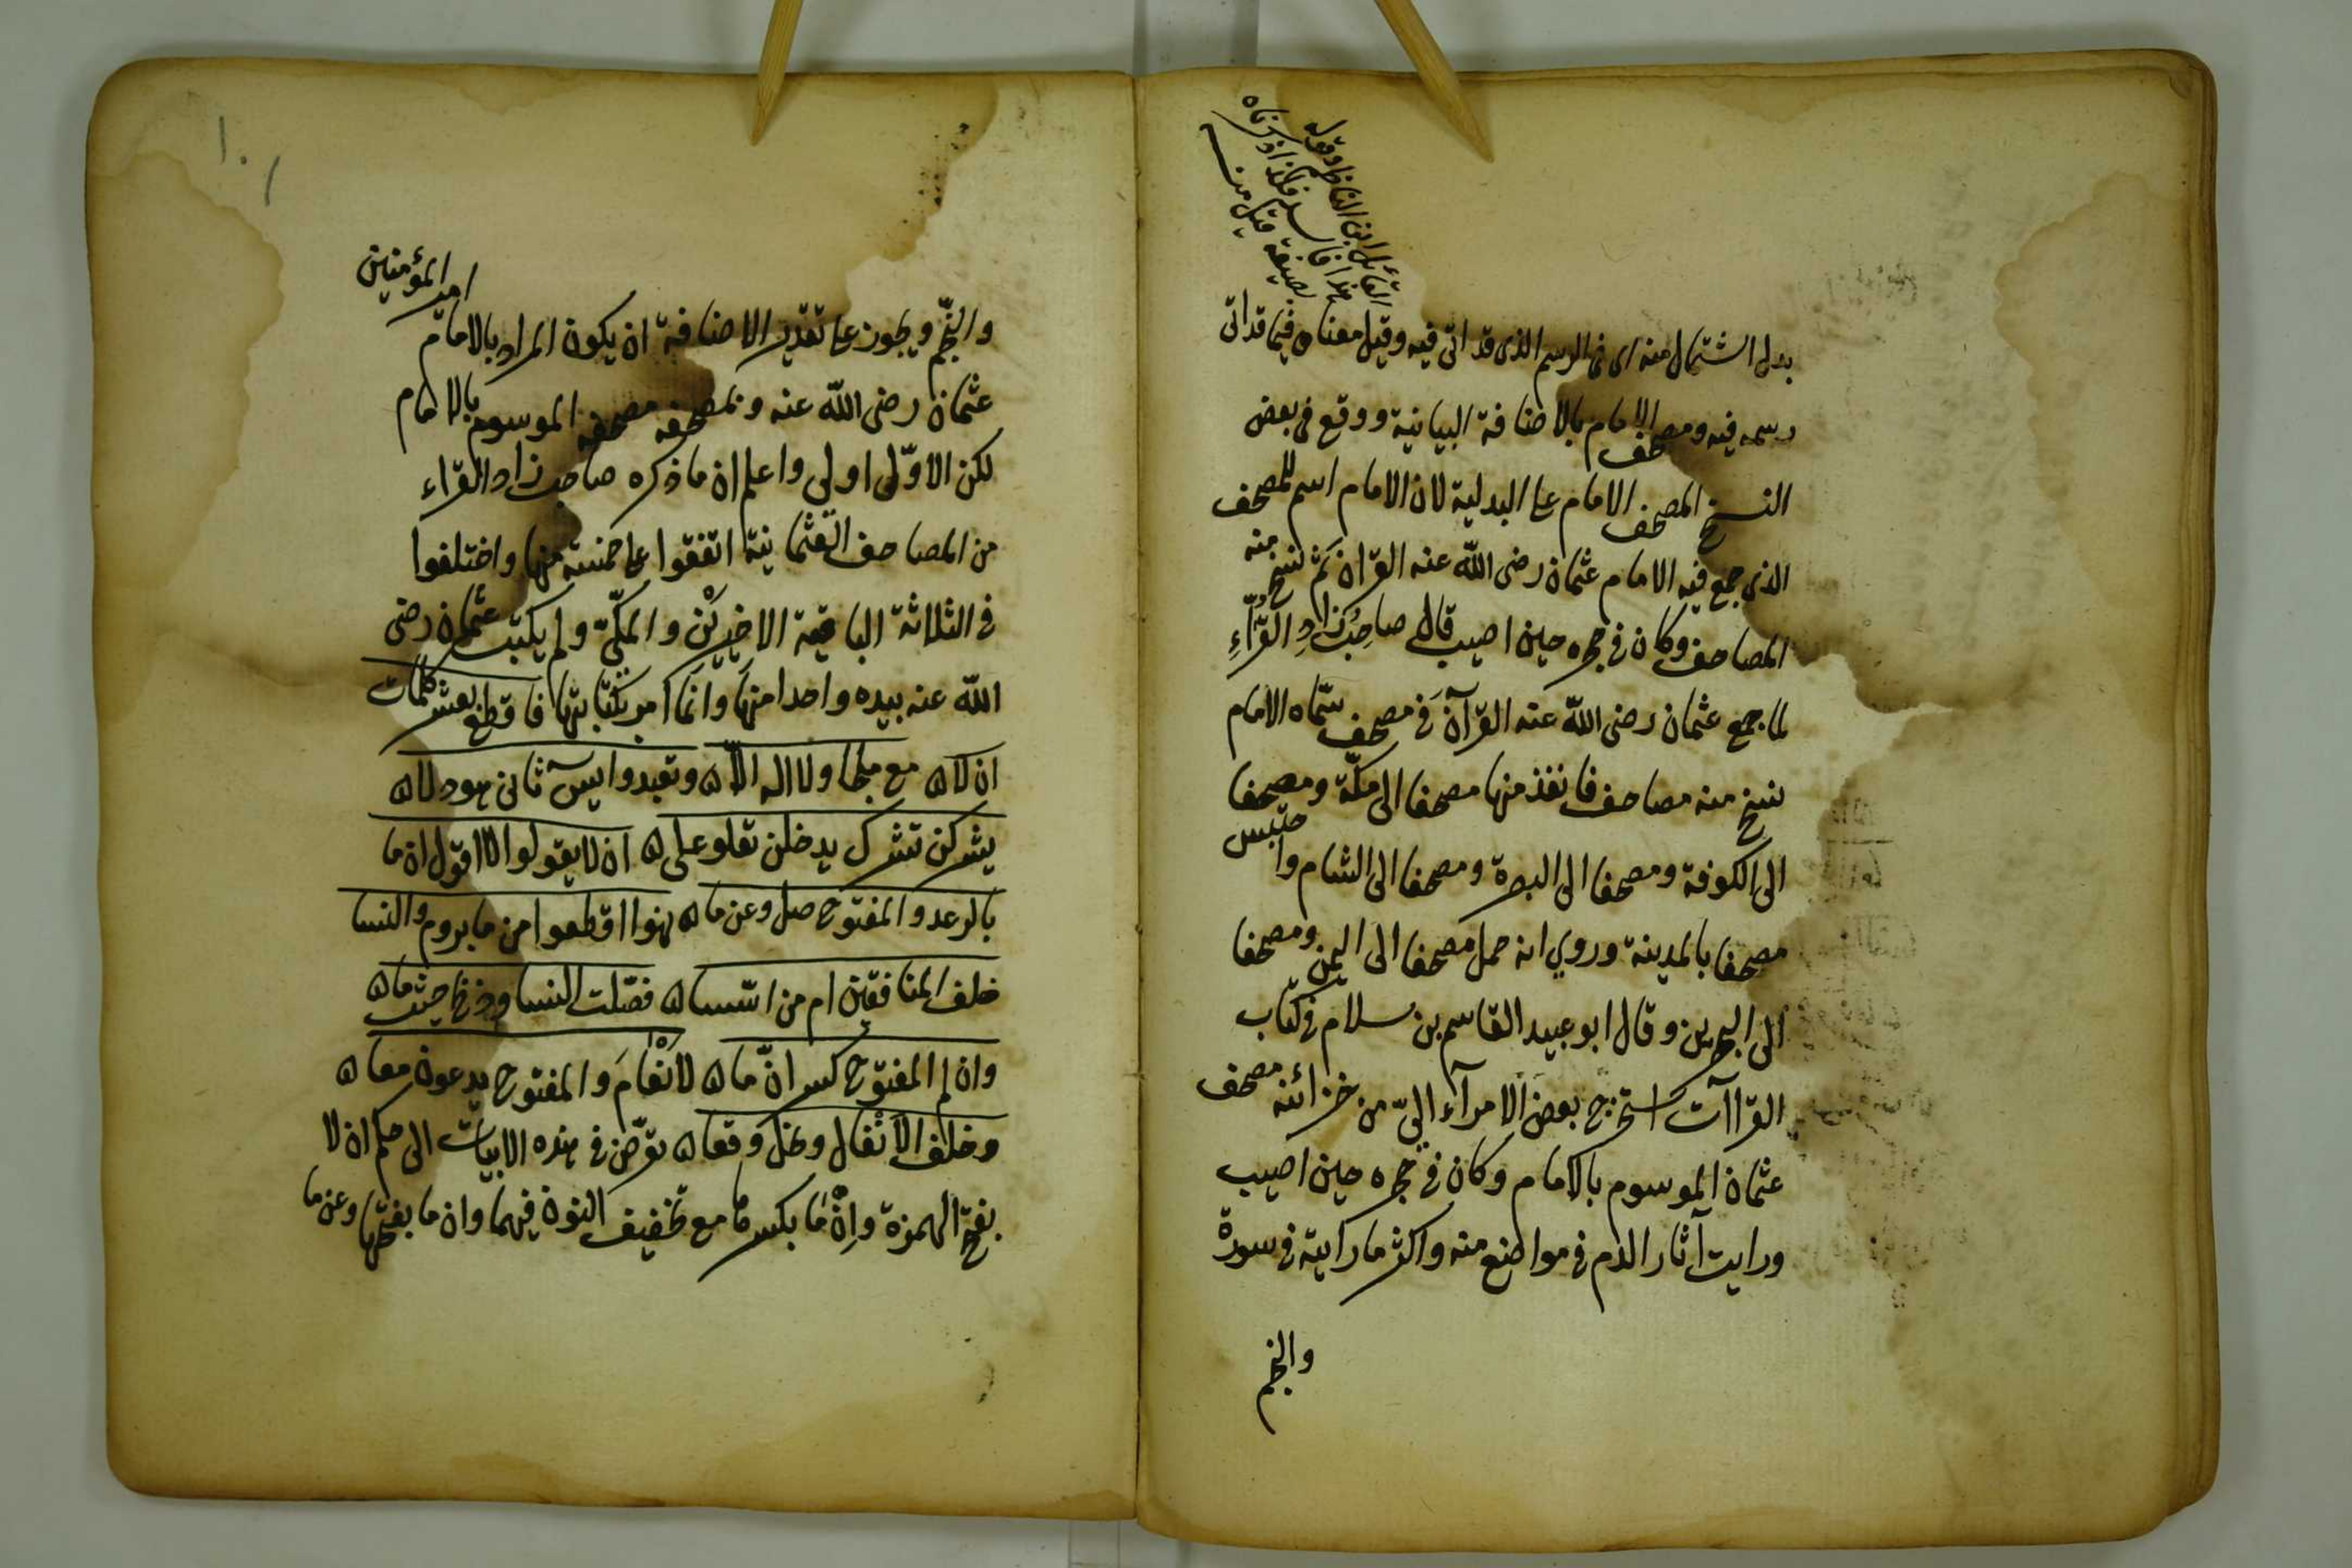 القائل ابن الناظم وقوله
هذا فاسد فلذا ذكرناه
بصيغة قيل منه
بدل اشتمال منه اى فى الرسم الذى قد اتى فيه وقيل معناه فيما قد اتى
رسمه فيه ومصحف الامام بالاضافة البيانية ووقع فى بعض
النسخ المصحف الامام على البدلية لان الامام اسم للمصحف
الذى جمع فيه الامام عثمان رضى الله عنه القران ثم نسخ منه
المصاحف وكان فى حجره حين اصيب قال صاحبُ زادِ القرّاءِ
لما جمع عثمان رضى الله عنه القرآن فى مصحف سمّاه الامام
نسخ منه مصاحف فانفذ منها مصحفا الى مكّة ومصحفا
الى الكوفة ومصحفا الى البصرة ومصحفا الى الشام واحتبس
مصحفا بالمدينة وروي انه حمل مصحفا الى اليمن ومصحفا
الى البحرين وقال ابو عبيد القاسم بن سلام فى كتاب
القراآت استخرج بعض الامرآء اليّ من خزائنه مصحف
عثمان الموسوم بالامام وكان فى حجره حين اصيب
ورايت آثار الدم فى مواضع منه واكثر ما رايته فى سورة
والنجم
١٠
والنّجم ويجوز على تقدير الاضافة ان يكون المراد بالامام امير المؤمنين
عثمان رضى الله عنه وبمصحفه مصحفه الموسوم بالامام
لكن الاوّل اولى واعلم ان ما ذكره صاحب زاد القرّاء
من المصاحف العثمانية اتفقوا على خمسة منها واختلفوا
فى الثلاثة الباقية الاخيرَيْن والمكّيّ ولم يكتب عثمان رضى
الله عنه بيده واحدا منها وانما امر بكتابتها فاقطع بعشر كلمات
ان لا ه مع ملجا ولا اله الا ه وتعبدوا يس ثانى هود لا ه
يشركن تشرك يدخلن تعلو على ه ان لا يقولوا لا اقول ان ما
بالرعد والمفتوح صل وعن ما ه نهوا اقطعوا من ما بروم والنسا
خلف المنافقين ام من اسّسا ه فصّلت النسا وذبح حيث ما ه
وان لم المفتوح كسر انّ ما ه لانْعامَ والمفتوح يدعون معا ه
وخلف الانفال ونحل وقعا ه توّض فى هذه الابيات الى حكم ان لا
بفتح الهمزة وإنْ مَا بكسرها مع تخفيف النون فيهما وان ما بفتحها وعن ما